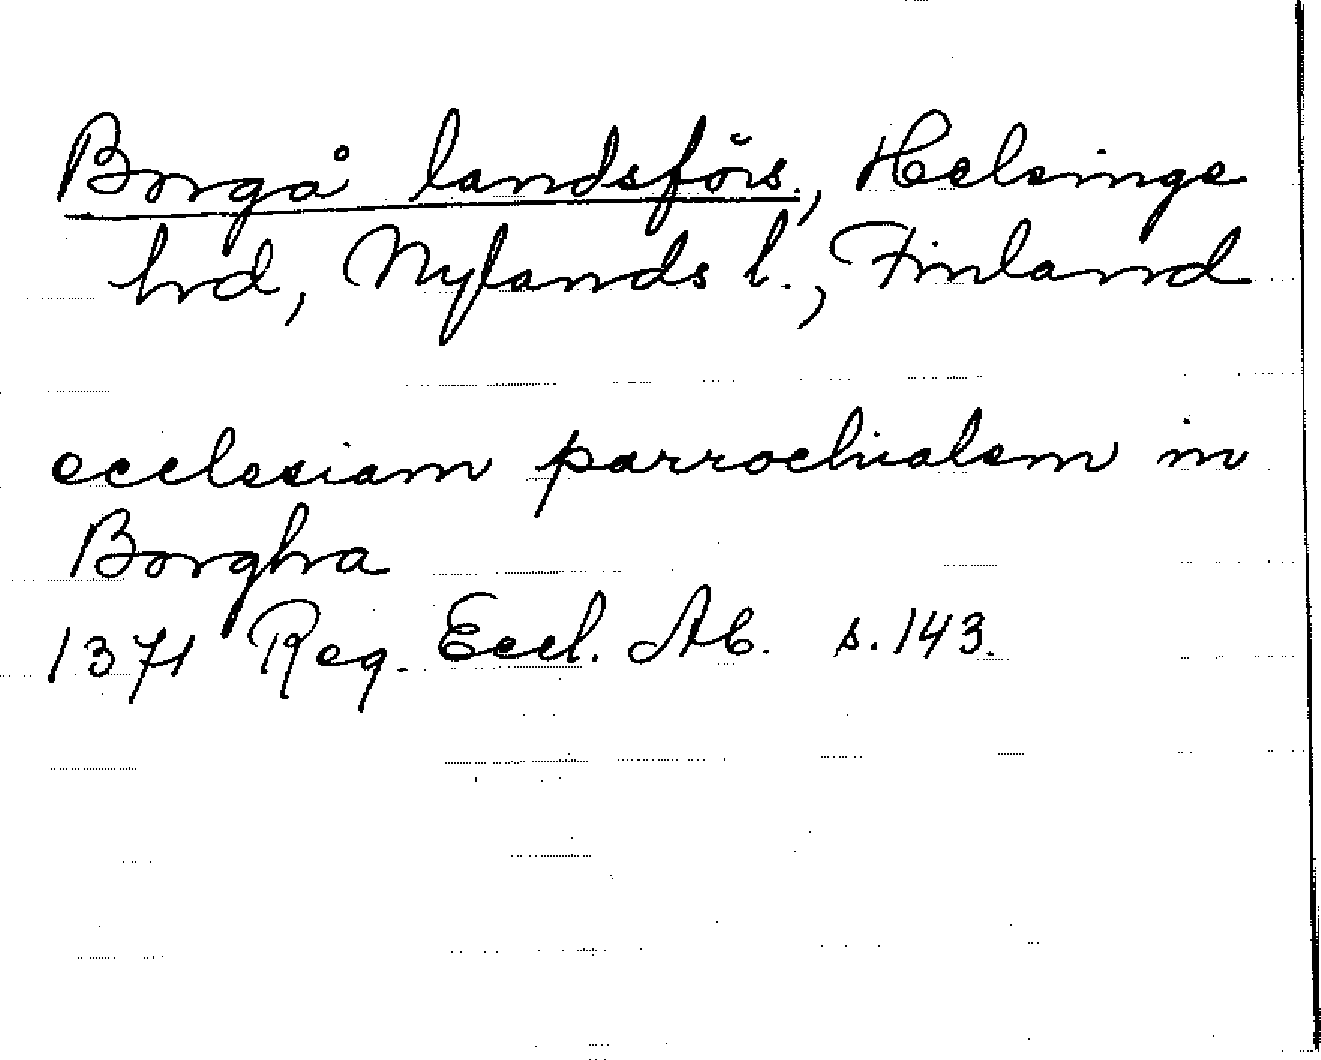 Borgå landsförs., Helsinge
hrd, Nylands l., Finland
ecclesiam parrochialem in
Borghra
1371 Reg. Eccl. Ab. s. 143.